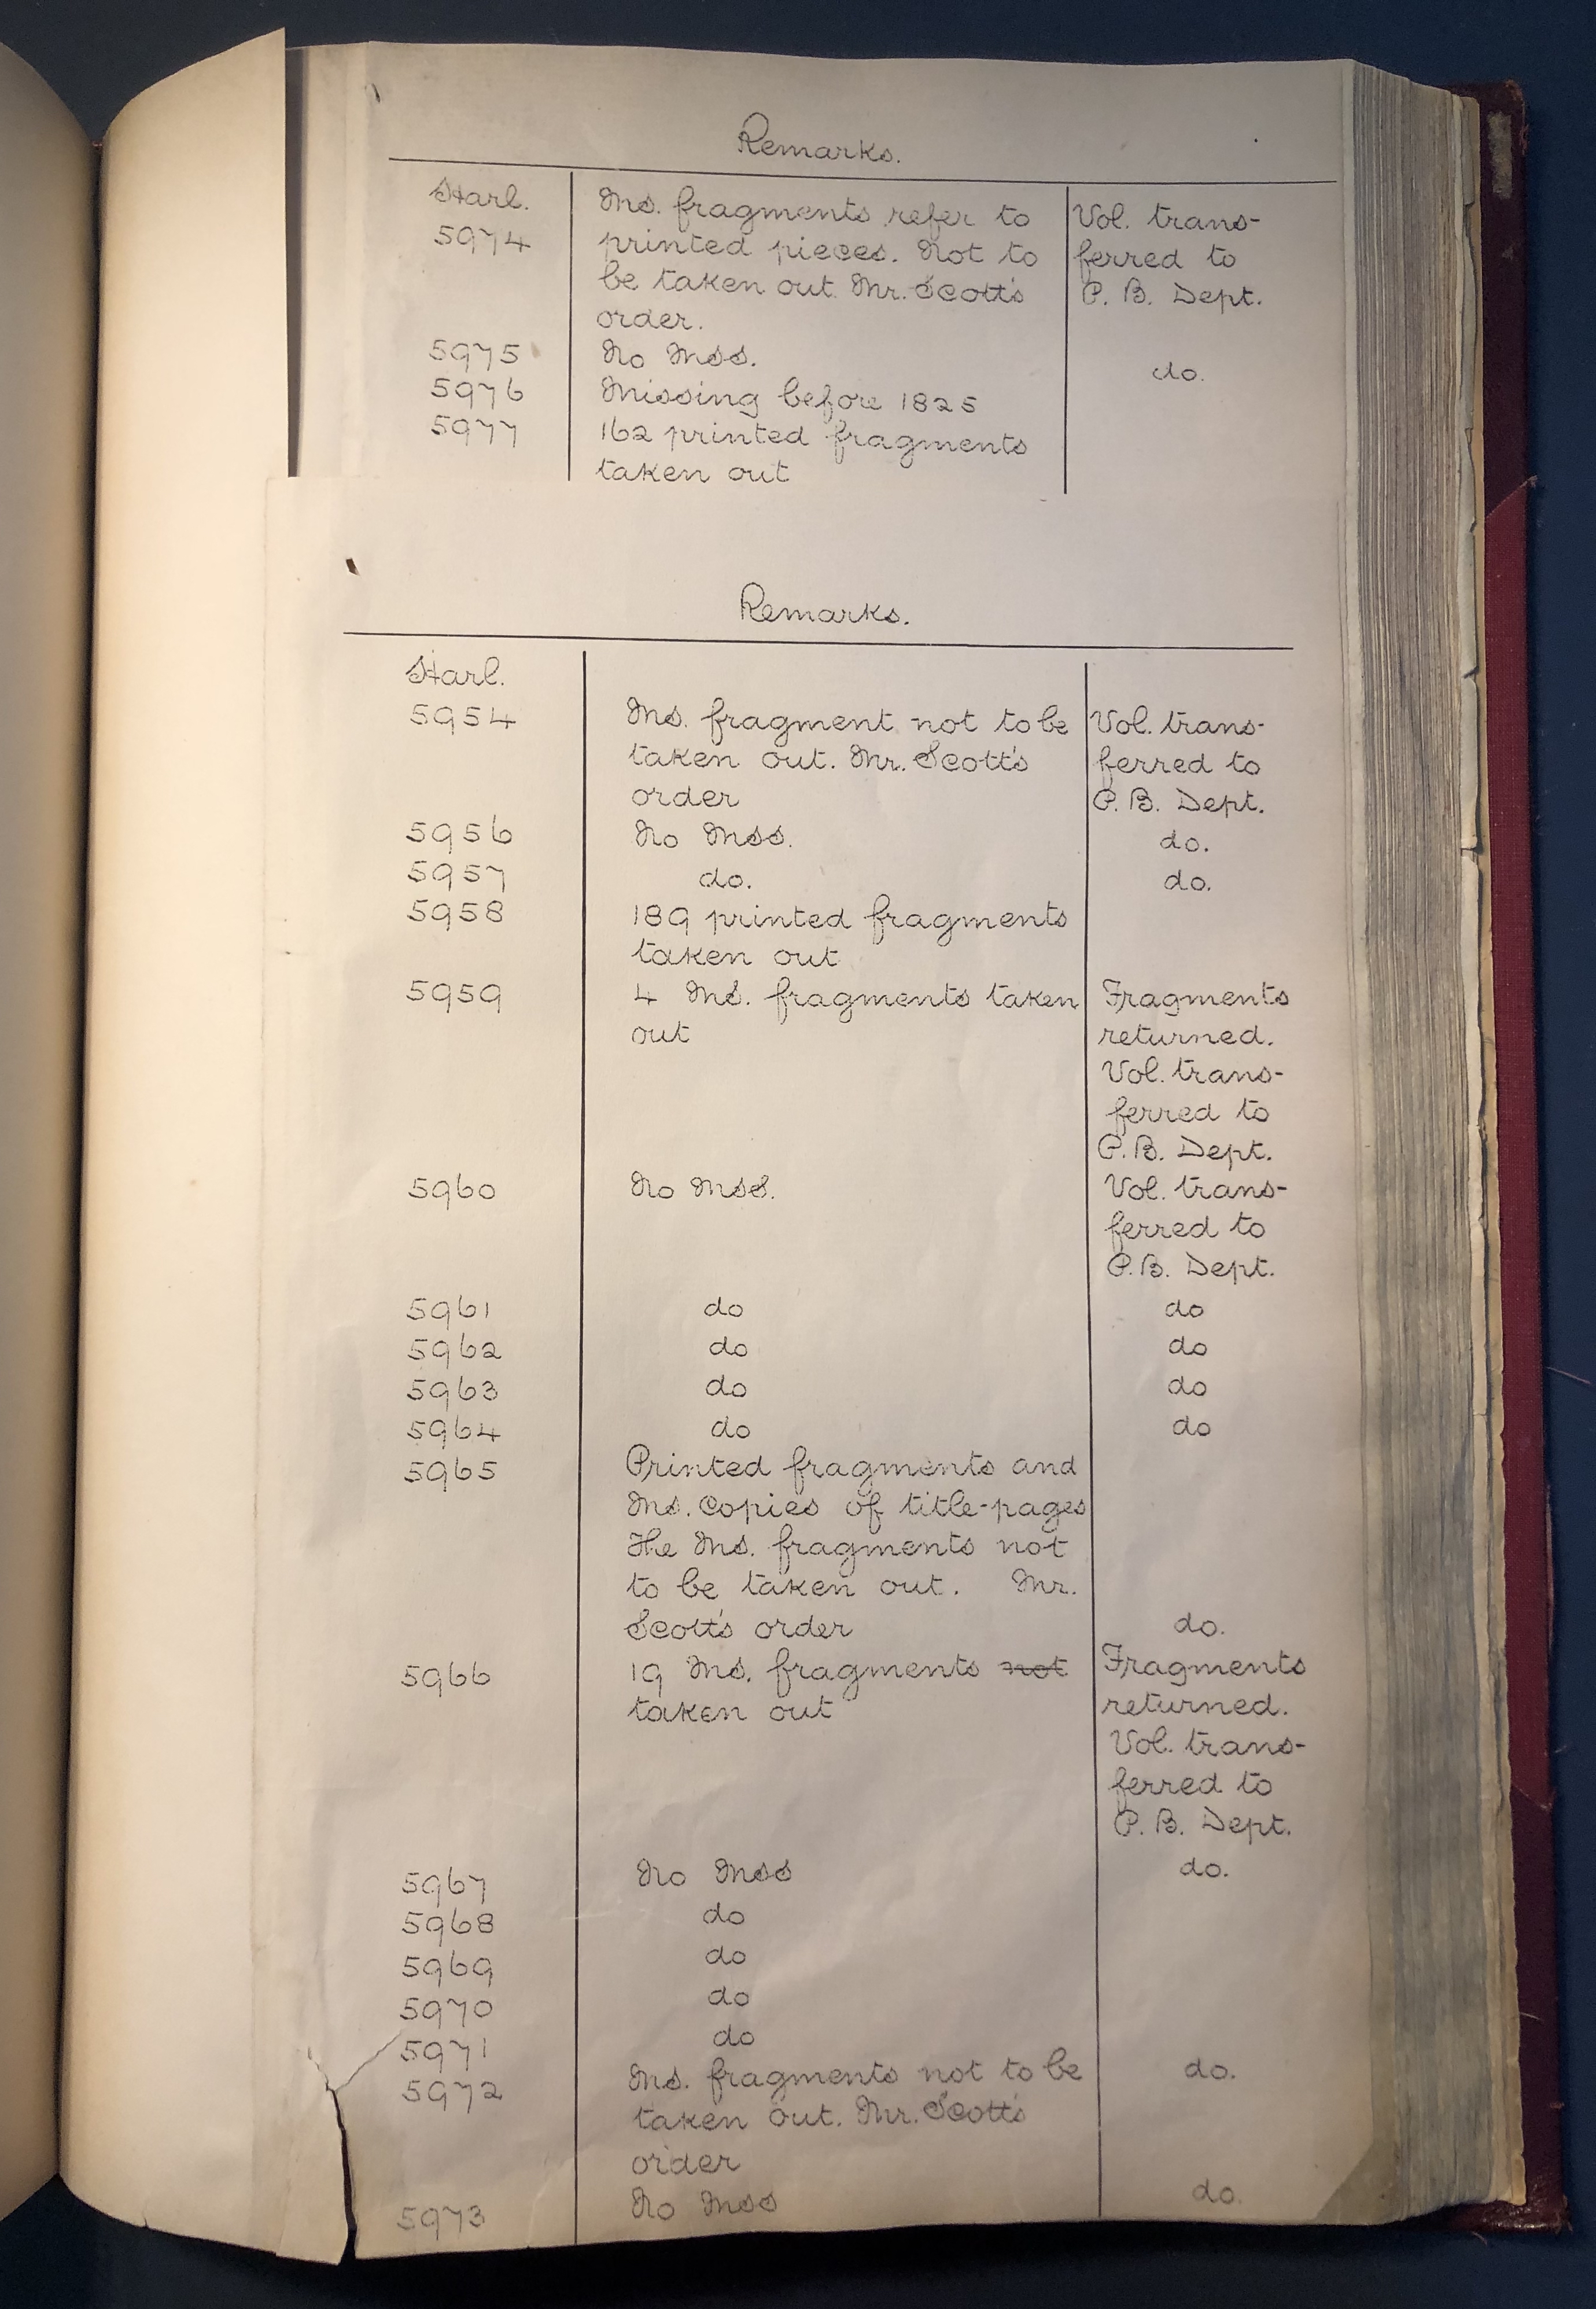 Remarks.
Harl. Ms. fragments refer to Vol. trans-
5974 printed pieces. Not to ferred to
be taken out. Mr. Scott's P. B. Dept.
order.
5975 No Mss. do.
5976 Missing before 1825
5977 162 printed fragments
taken out
Remarks.
Harl.
5954 Ms. fragment not to be Vol. trans-
taken out. Mr. Scott's ferred to
order P. B. Dept.
5956 No Mss. do.
5957 do. do.
5958 189 printed fragments
taken out
5959 4 Ms. fragments taken Fragments
out returned.
Vol. trans-
ferred to
P. B. Dept.
5960 No Mss. Vol. trans-
ferred to
P. B. Dept.
5961 do do
5962 do do
5963 do do
5964 do do
5965 Printed fragments and
Ms. copies of title-pages
The Ms. fragments not
to be taken out. Mr.
Scott's order do.
5966 19 Ms. fragments not Fragments
taken out returned.
Vol. trans-
ferred to
P. B. Dept.
5967 No Mss do.
5968 do
5969 do
5970 do
5971 do
5972 Ms. fragments not to be do.
taken out. Mr. Scott's
order
5973 No Mss do.